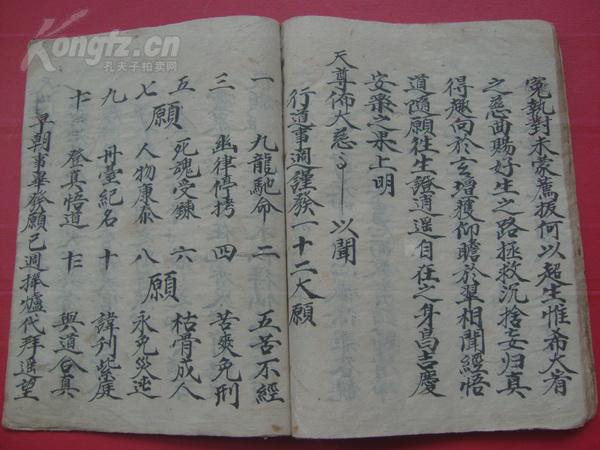 冤執對未蒙薦拔何以超生惟希大宥
之慈曲賜好生之路拯救沉捨妄归真
得趣向於玄增獲仰瞻於翠相聞經悟
道隨願往生證逍遥自在之身高吉慶
安樂之果上明
天尊佈大慈〻以聞
行道事週謹發一十二大願
一 九龍馳命 二 五苦不經
三 幽律停拷 四 苦爽免刑
五 願 死魂受鍊 六 枯骨成人
七 人物康泰 八 願 永免災迍
九 丹臺紀名 十 諱刊紫庭
十一 登真悟道 十二 與道合真
早朝事畢發願已週捧爐代拜遥望
Kongfz.cn
孔夫子拍卖网